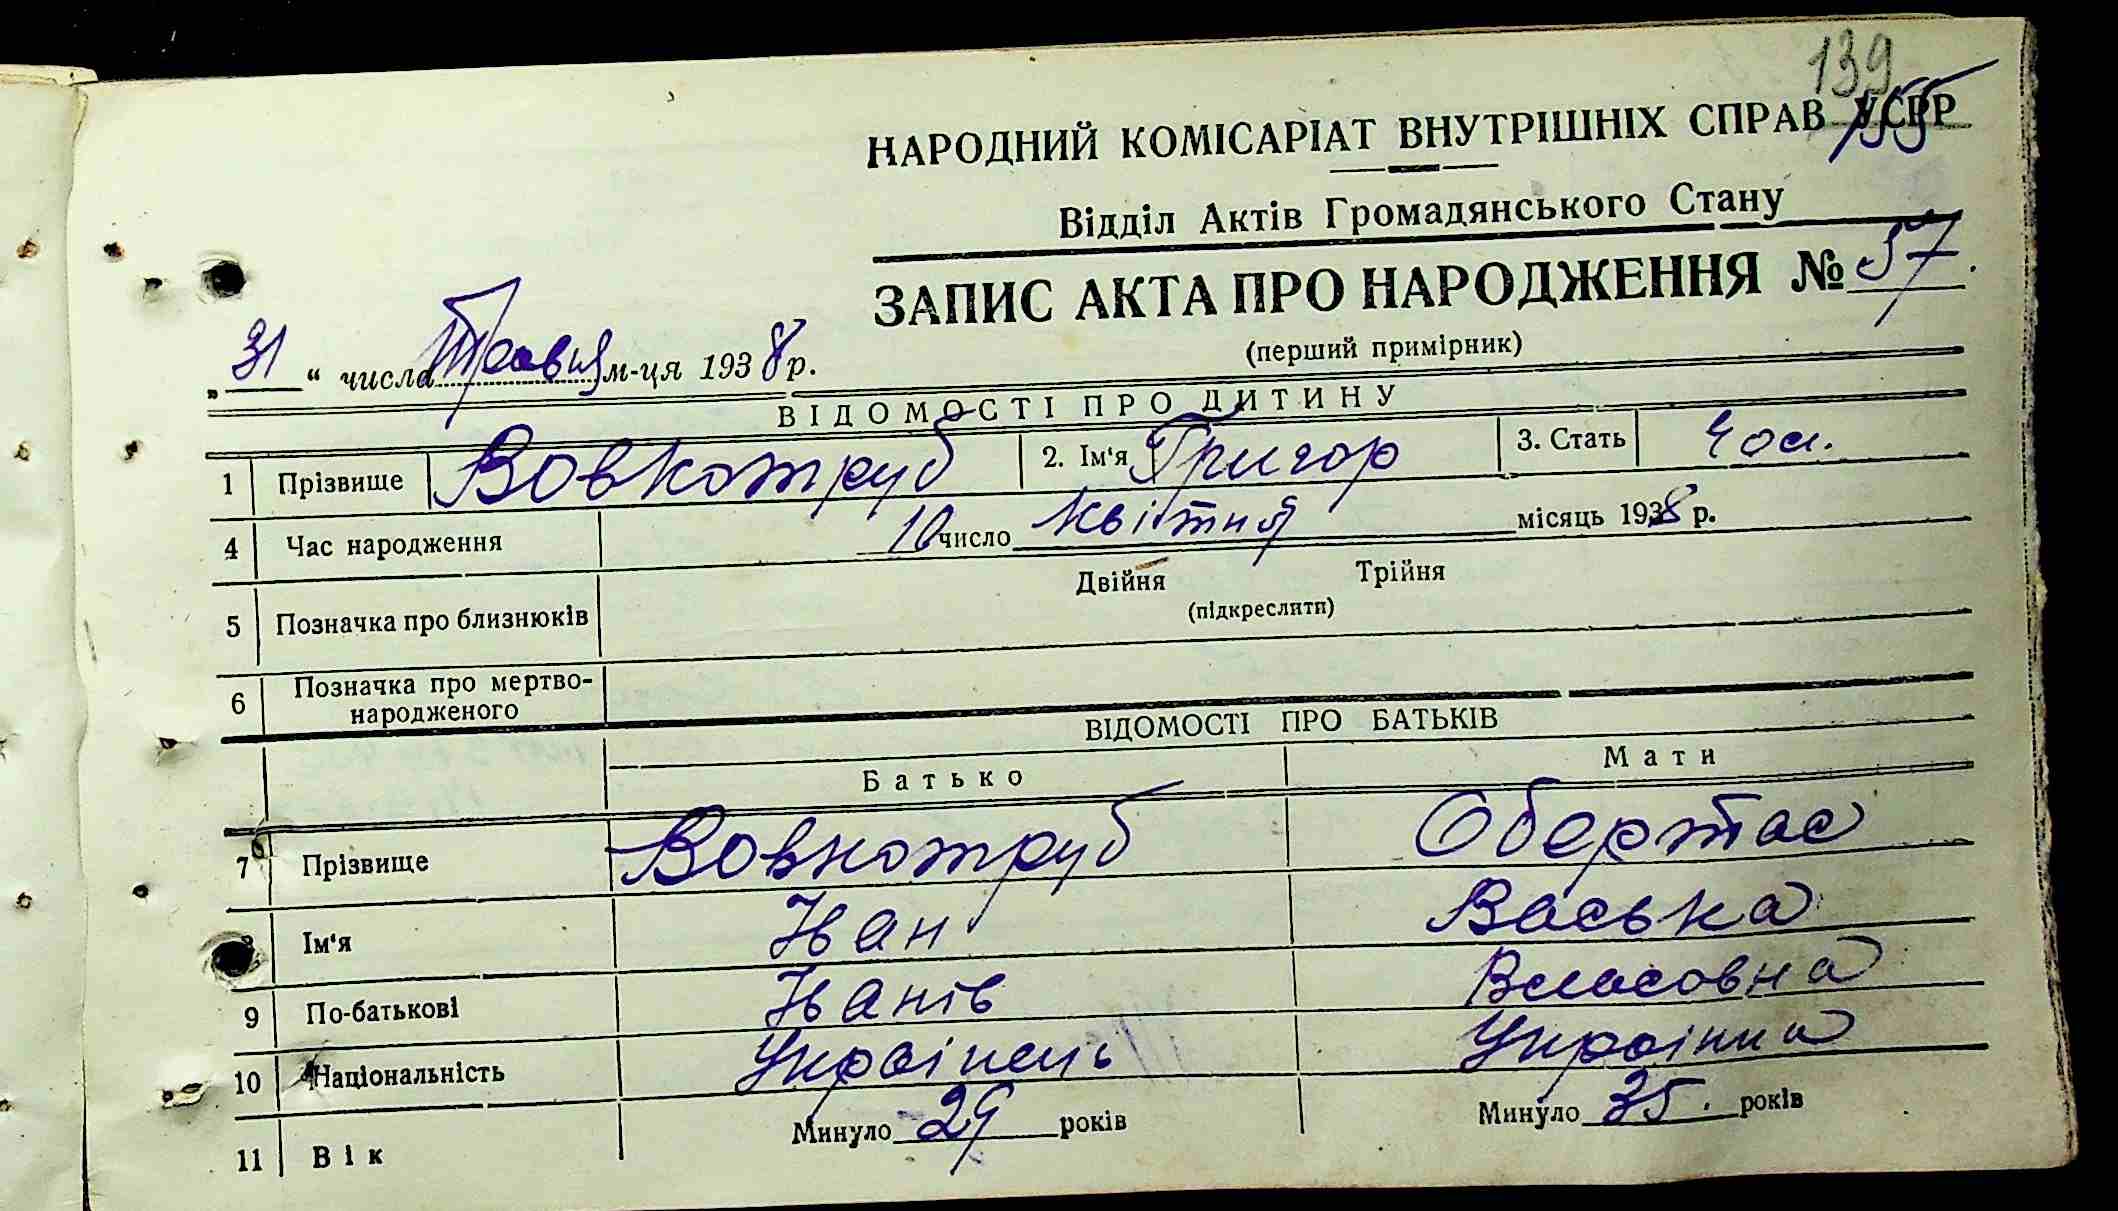 139
155
НАРОДНИЙ КОМІСАРІАТ ВНУТРІШНІХ СПРАВ УСРР
Відділ Актів Громадянського Стану
ЗАПИС АКТА ПРО НАРОДЖЕННЯ № 57
(перший примірник)
„31“ числа Травня м-ця 1938 р.
ВІДОМОСТІ ПРО ДИТИНУ
1 Прізвище Вовкотруб 2. Ім'я Григор 3. Стать чол.
4 Час народження 10 число квітня місяць 1938 р.
5 Позначка про близнюків Двійня Трійня
(підкреслити)
6 Позначка про мертво-
народженого
ВІДОМОСТІ ПРО БАТЬКІВ
Батько Мати
7 Прізвище Вовкотруб Обертас
8 Ім'я Іван Васька
9 По-батькові Іванів Власовна
10 Національність Українець Українка
11 Вік Минуло 29 років Минуло 35. років